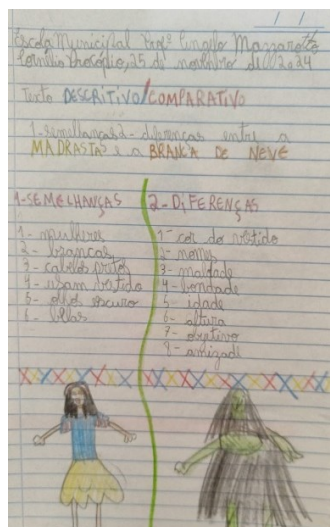 Escola Municipal Profº Ângelo Mazzarotto
Cornélio Procópio, 25 de novembro de 2024
Texto DESCRITIVO/COMPARATIVO
1-semelhanças 2- diferenças entre a
MADRASTA e a BRANCA DE NEVE
1-SEMELHANÇAS
1- mulheres
2- brancas
3- cabelos pretos
4- usam vestido
5- olhos escuro
6- belas
2-DIFERENÇAS
1- cor do vestido
2- nomes
3- maldade
4- bondade
5- idade
6- altura
7- objetivo
8- amizade